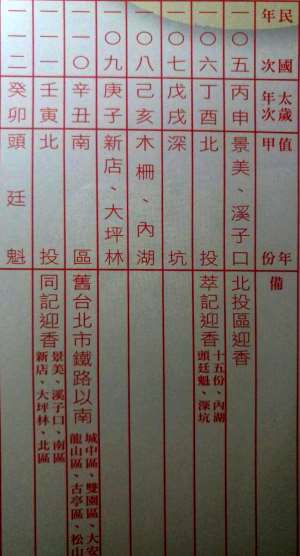 民國年次 太歲年次 值年甲份 備
一〇五 丙申 景美、溪子口 北投區迎香
一〇六 丁酉 北投 萃記迎香 十五份、內湖
頭廷魁、深坑
一〇七 戊戌 深坑
一〇八 己亥 木柵、內湖
一〇九 庚子 新店、大坪林
一一〇 辛丑 南區 舊台北市鐵路以南 城中區、雙園區、大安
龍山區、古亭區、松山
一一一 壬寅 北投 同記迎香 景美、溪子口、南區
新店、大坪林、北區
一一二 癸卯 頭廷魁